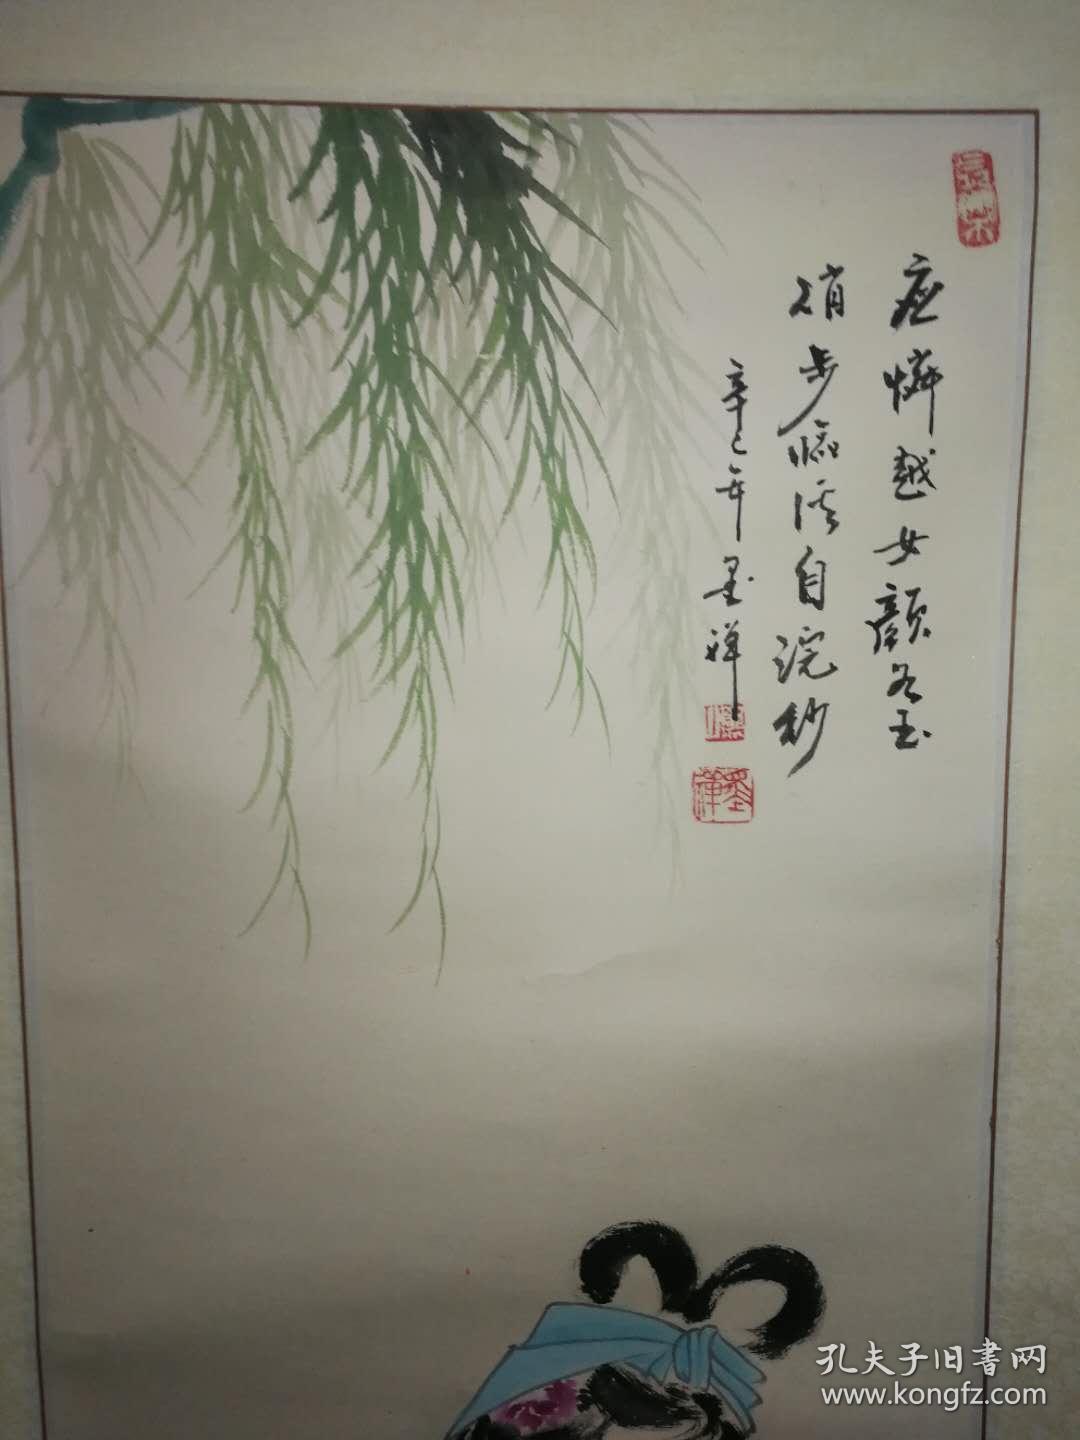 应怜越女颜如玉
俏步临溪自浣纱
辛巳年墨祥
墨祥
孔夫子旧书网
www.kongfz.com